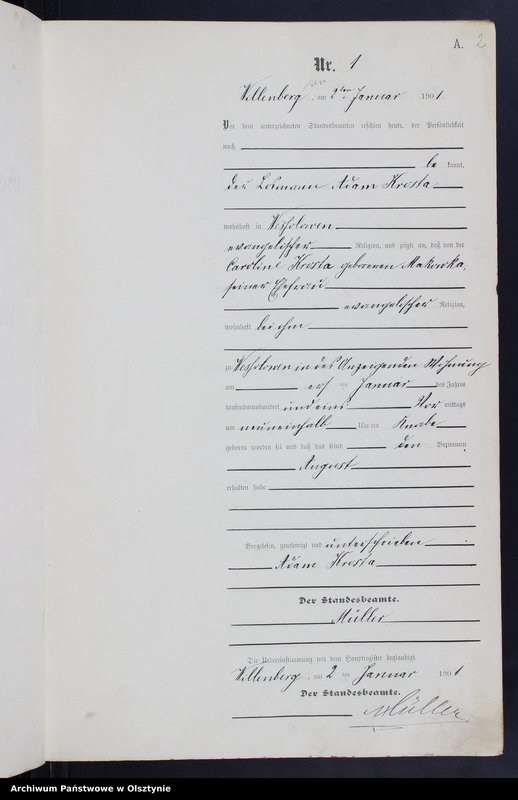 A. 2
Nr. 1
Willenberg, am 2ten Januar 1901.
Vor dem unterzeichneten Standesbeamten erschien heute, der Persönlichkeit
nach
be kannt,
der Losmann Adam Krosta
wohnhaft in Wessolowen
evangelischer Religion, und zeigte an, daß von der
Caroline Krosta geborenen Makowka,
seiner Ehefrau
evangelischer Religion,
wohnhaft bei ihm
zu Wessolowen in des Anzeigenden Wohnung
am ersten Januar des Jahres
tausendneunhundert und eins Vor mittags
um neuneinhalb Uhr ein Knabe
geboren worden sei und daß das Kind den Vornamen
August
erhalten habe
Vorgelesen, genehmigt und unterschrieben
Adam Krosta
Der Standesbeamte.
Müller
Die Uebereinstimmung mit dem Hauptregister beglaubigt
Willenberg, am 2 ten Januar 1901.
Der Standesbeamte.
Müller
Archiwum Państwowe w Olsztynie